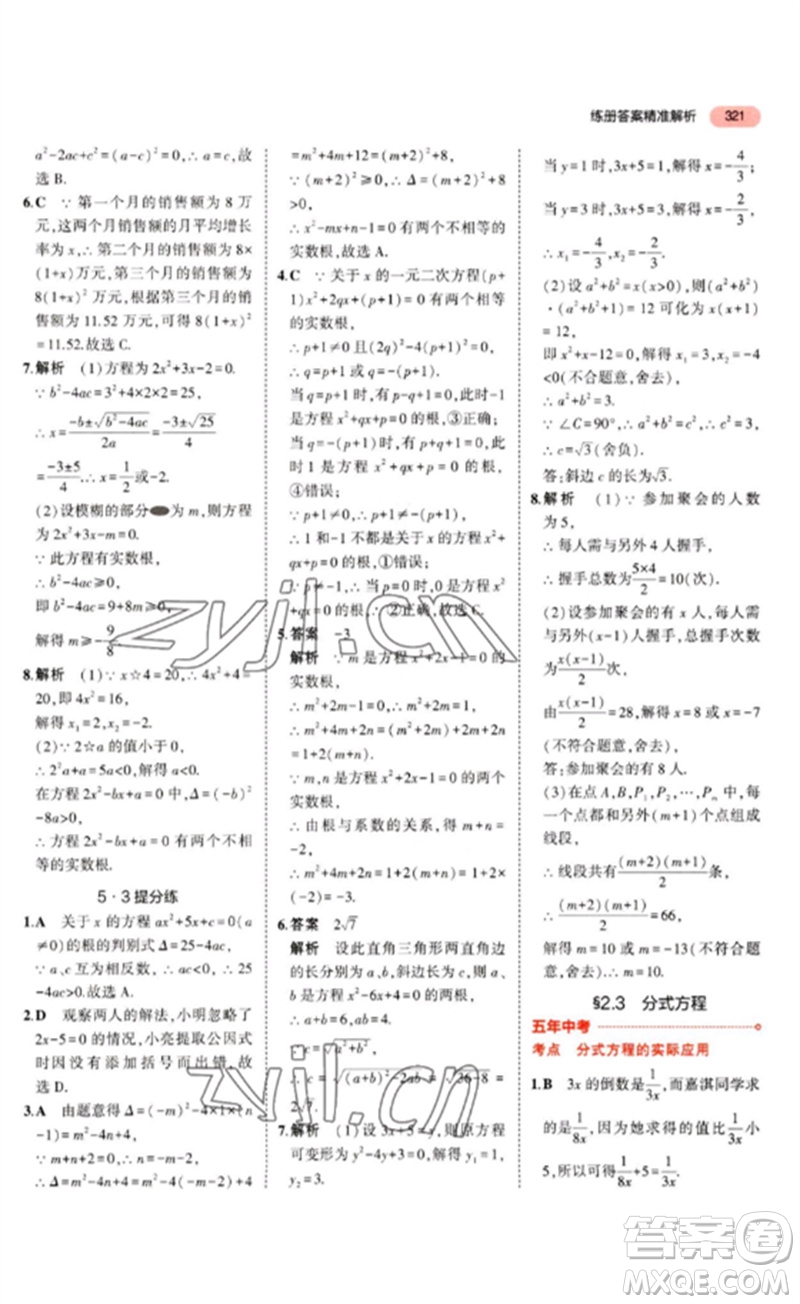 练册答案精准解析 321
a²-2ac+c²=(a-c)²=0,∴a=c,故
选 B.
6.C ∵第一个月的销售额为 8 万
元,这两个月销售额的月平均增长
率为 x,∴第二个月的销售额为 8×
(1+x)万元,第三个月的销售额为
8(1+x)²万元,根据第三个月的销
售额为 11.52 万元,可得 8(1+x)²
=11.52.故选 C.
7.解析 (1)方程为 2x²+3x-2=0.
∵b²-4ac=3²+4×2×2=25,
∴x=(-b±√(b²-4ac))/2a=(-3±√25)/4
=(-3±5)/4.∴x=1/2或-2.
(2)设模糊的部分 为 m,则方程
为 2x²+3x-m=0.
∵此方程有实数根,
∴b²-4ac≥0,
即 b²-4ac=9+8m≥0,
解得 m≥-9/8.
8.解析 (1)∵x☆4=20,∴4x²+4=
20,即 4x²=16,
解得 x₁=2,x₂=-2.
(2)∵2☆a 的值小于 0,
∴2²a+a=5a<0,∴a<0.
在方程 2x²-bx+a=0 中,Δ=(-b)²
-8a>0,
∴方程 2x²-bx+a=0 有两个不相
等的实数根.
5·3提分练
1.A 关于 x 的方程 ax²+5x+c=0(a
≠0)的根的判别式 Δ=25-4ac,
∵a、c 互为相反数,∴ac<0,∴25-
4ac>25.故选 A.
2.D 观察两人的解法,小明忽略了
2x-5=0 的情况,小亮提取公因式
时因没有进行变号而出错.故
选 D.
3.A 由题意得 Δ=(-m)²-4×1×(n
-1)=m²-4n+4,
∵m+n=-1,∴n=-m-1,
∴Δ=m²-4n+4=m²-4(-m-1)+4
=m²+4m+12=(m+2)²+8,
∵(m+2)²≥0,∴Δ=(m+2)²+8
>0,
∴x²-mx+n-1=0 有两个不相等的
实数根,故选 A.
4.C ∵关于 x 的一元二次方程(p+
1)x²+2qx+(p+1)=0 有两个相等
的实数根,
∴p+1≠0 且(2q)²-4(p+1)²=0,
∴q=p+1 或 q=-(p+1).
当 q=p+1 时,有 p-q+1=0,此时-1
是方程 x²+qx+p=0 的根,③正确;
当 q=-(p+1)时,有 p+q+1=0,此
时 1 是方程 x²+qx+p=0 的根,
④错误;
∵p+1≠0,∴p+1≠-(p+1),
∴1 和-1 不都是关于 x 的方程 x²+
qx+p=0 的根,①错误;
∵p≠-1,∴x=0 可能是方程 x²+
qx+p=0 的根,∴②正确,故选 C.
5.答案 -3
解析 ∵m 是方程 x²+2x-1=0
的实数根,
∴m²+2m-1=0,∴m²+2m=1,
∴m²+4m+2n=(m²+2m)+2m+2n
=1+2(m+n),
∵m,n 是方程 x²+2x-1=0 的两个
实数根,
∴由根与系数的关系,得 m+n=
-2,
∴m²+4m+2n=1+2×(-2)=1-4=
-3.
6.答案 2√7
解析 设此直角三角形两直角边
的长分别为 a,b,斜边长为 c,∵a,
b 是一元二次方程 x²-6x+4=0 的
两个实数根,∴a+b=6,ab=4,
∴c=√((a+b)²-2ab)=√(36-8)=
2√7.
7.解析 (1)设 3x+5=y,则原方程
可变形为 y²-4y+3=0,解得 y₁=1,
y₂=3.
当 y=1 时,3x+5=1,解得 x=-4/3;
当 y=3 时,3x+5=3,解得 x=-2/3,
∴x₁=-4/3,x₂=-2/3.
(2)设 a²+b²=x(x>0),则(a²+b²)
·(a²+b²+1)=12 可化为 x(x+1)
=12,
即 x²+x-12=0,解得 x₁=3,x₂=-4
<0(不合题意,舍去),
∴a²+b²=3.
∵∠C=90°,∴c²=a²+b²=3,
∴c=√3(舍负).
答:斜边 c 的长为√3.
8.解析 (1)∵参加聚会的人数
为 5,
∴每人需与另外 4 人握手,
∴握手总数为5×4/2=10(次).
(2)设参加聚会的有 x 人,则每人
需与另外(x-1)人握手,握手总数
为x(x-1)/2次,
由x(x-1)/2=28,解得 x=8 或 x=-7
(不符合题意,舍去).
答:参加聚会的有 8 人.
(3)在点 A,B,P₁,P₂,…,Pₘ 中,任
一个点都和另外(m+1)个点组成
线段,
∴线段共有(m+2)(m+1)/2条,
∴(m+2)(m+1)/2=66,
解得 m=10 或 m=-13(不符合题
意,舍去).∴m=10.
§2.3 分式方程
五年中考
考点 分式方程的实际应用
1.B 3x 的倒数是1/3x,而嘉淇同学求
的是1/8x,因为她求得的值比1/3x小
5,所以可得1/8x+5=1/3x.
zyjl.cn
zyjl.cn
答案圈
MXQE.COM